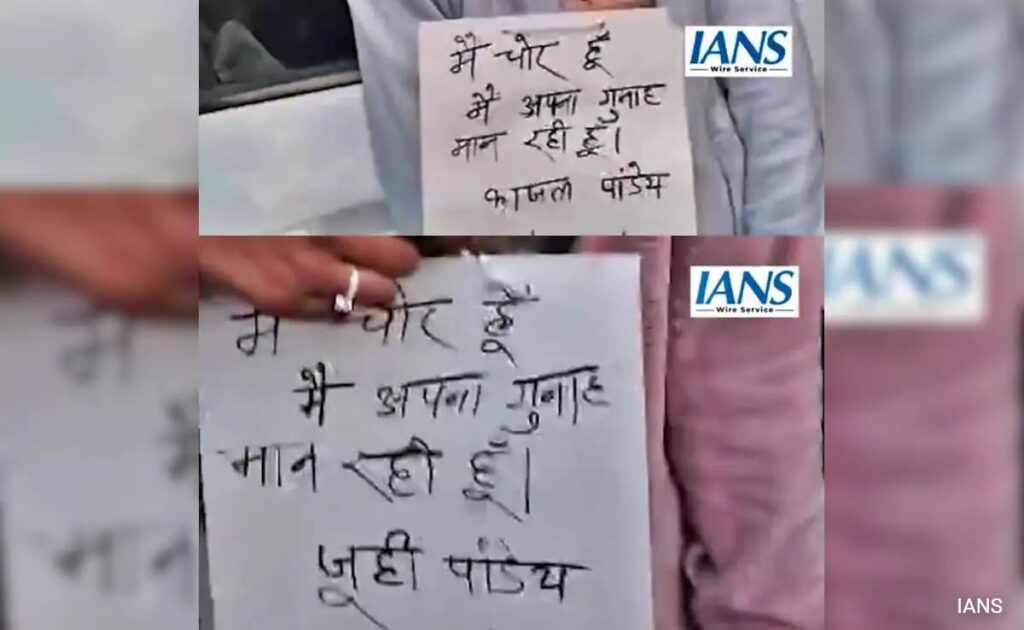 मै चोर हूँ
मै अपना गुनाह
मान रही हूँ।
काजल पांडेय
IANS
Wire Service
म चोर हूँ
मै अपना गुनाह
मान रही हूँ।
जूही पांडेय
IANS
Wire Service
IANS